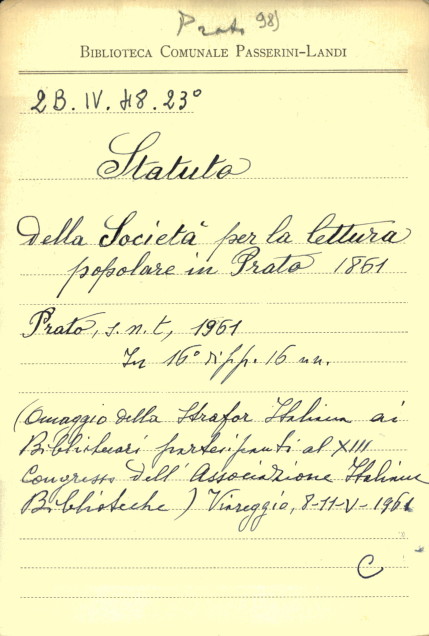 Prato 98)
BIBLIOTECA COMUNALE PASSERINI-LANDI
2B.IV.48.23°
Statuto
della Società per la lettura
popolare in Prato 1861
Prato, s.n.t, 1961
In 16° di pp. 16 nn.
(Omaggio della Strafor Italiana ai
Bibliotecari partecipanti al XIII
Congresso dell'Associazione Italiana
Biblioteche) Viareggio, 8-11-V-1961
C